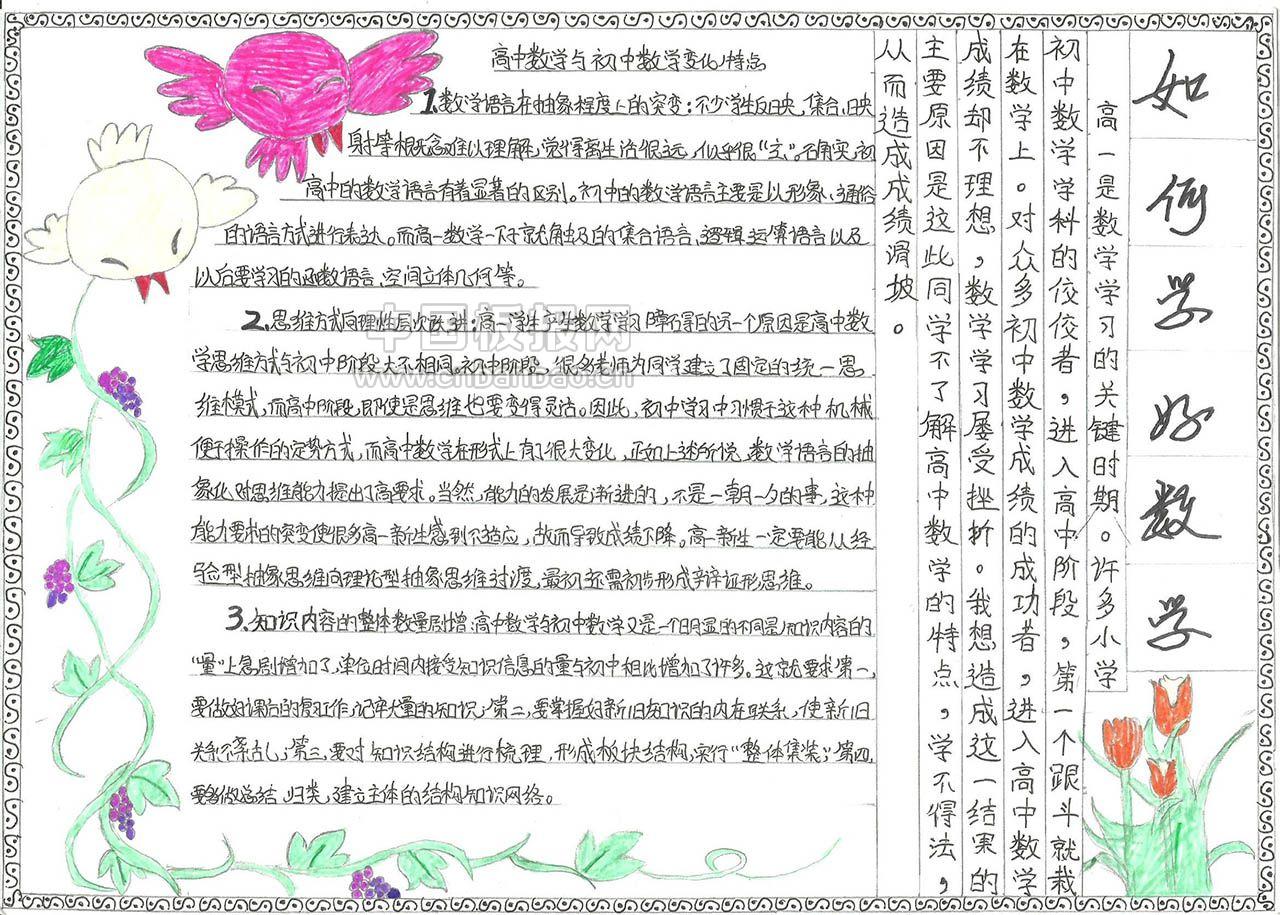 如何学好数学
高一是数学学习的关键时期。许多小学
初中数学学科的佼佼者，进入高中阶段，第一个跟斗就栽
在数学上。对众多初中数学成绩的成功者，进入高中数学
成绩却不理想，数学学习屡受挫折。我想造成这一结果的
主要原因是这此同学不了解高中数学的特点，学不得法，
从而造成成绩滑坡。
高中数学与初中数学变化特点
1.数学语言在抽象程度上的突变：不少学生反映，集合、映
射等概念难以理解，觉得离生活很远，似乎很“玄”。确实，初
高中的数学语言有着显著的区别。初中的数学语言主要是以形象、通俗
的语言方式进行表达。而高一数学一下子就触及的集合语言、逻辑运算语言以及
以后要学习的函数语言、空间立体几何等。
2.思维方式向理性层次跃进：高一学生产生数学学习障碍的另一个原因是高中数
学思维方式与初中阶段大不相同。初中阶段，很多老师为同学建立了固定的统一思
维模式，而高中阶段，即使是思维也要变得灵活。因此，初中学习中习惯于这种机械
便于操作的定势方式，而高中数学在形式上有了很大变化，正如上述所说，数学语言的抽
象化对思维能力提出了高要求。当然，能力的发展是渐进的，不是一朝一夕的事，这种
能力要求的突变使很多高一新生感到不适应，故而导致成绩下降。高一新生一定要能从经
验型抽象思维向理论型抽象思维过渡，最初还需初步形成辩证形思维。
3.知识内容的整体数量剧增：高中数学与初中数学又是一个明显的不同是知识内容的
“量”上急剧增加了，单位时间内接受知识信息的量与初中相比增加了许多。这就要求第一，
要做好课后的复习工作，记牢大量的知识；第二，要掌握好新旧知识的内在联系，使新旧
关系不紊乱；第三，要对知识结构进行梳理，形成板块结构，实行“整体集装”；第四，
要多做总结、归类，建立主体的结构知识网络。
中国板报网
www.cnbanbao.cn